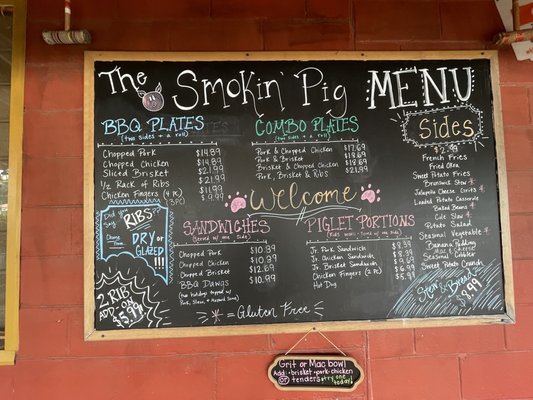 The Smokin' Pig MENU
BBQ PLATES
(two sides + a roll)
Chopped Pork $14.89
Chopped Chicken $14.89
Sliced Brisket $21.99
1/2 Rack of Ribs $21.99
Chicken Fingers (4 pc) $11.99
(3PC) $9.99
COMBO PLATES
(two sides + a roll)
Pork & Chopped Chicken $17.69
Pork & Brisket $18.69
Brisket & Chopped Chicken $18.69
Pork, Brisket & Ribs $21.99
Sides
$2.99
French Fries
Fried Okra
Sweet Potato Fries
Brunswick Stew
Jalapeño Cheese Grits
Loaded Potato Casserole
Baked Beans
Cole Slaw
Potato Salad
Seasonal Vegetable
Mac & Cheese
Banana Pudding
Seasonal Cobbler
Sweet Potato Crunch
Stew & Bread
$8.99
Welcome
RIBS
DRY or
GLAZED!!!
2 RIBS
ADD ON
$5.99
SANDWICHES
(Served w/ one side)
Chopped Pork $10.39
Chopped Chicken $10.39
Chopped Brisket $12.69
BBQ Dawgs $10.99
PIGLET PORTIONS
Jr. Pork Sandwich $8.39
Jr. Chicken Sandwich
Jr. Brisket Sandwich
Chicken Fingers (2 pc)
Hot Dog
= Gluten Free
Grit or Mac bowl
Add: brisket · pork · chicken
or tenders try one today!